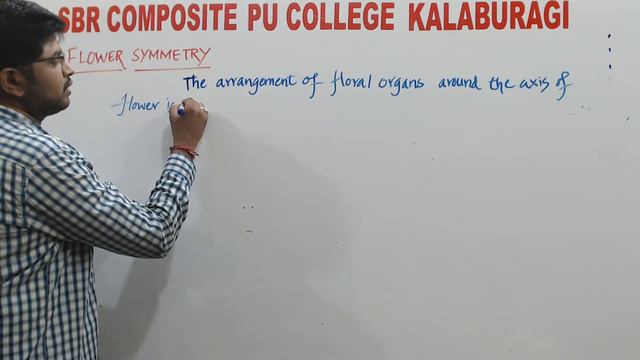 SBR COMPOSITE PU COLLEGE KALABURAGI
FLOWER SYMMETRY
The arrangement of floral organs around the axis of
flower is